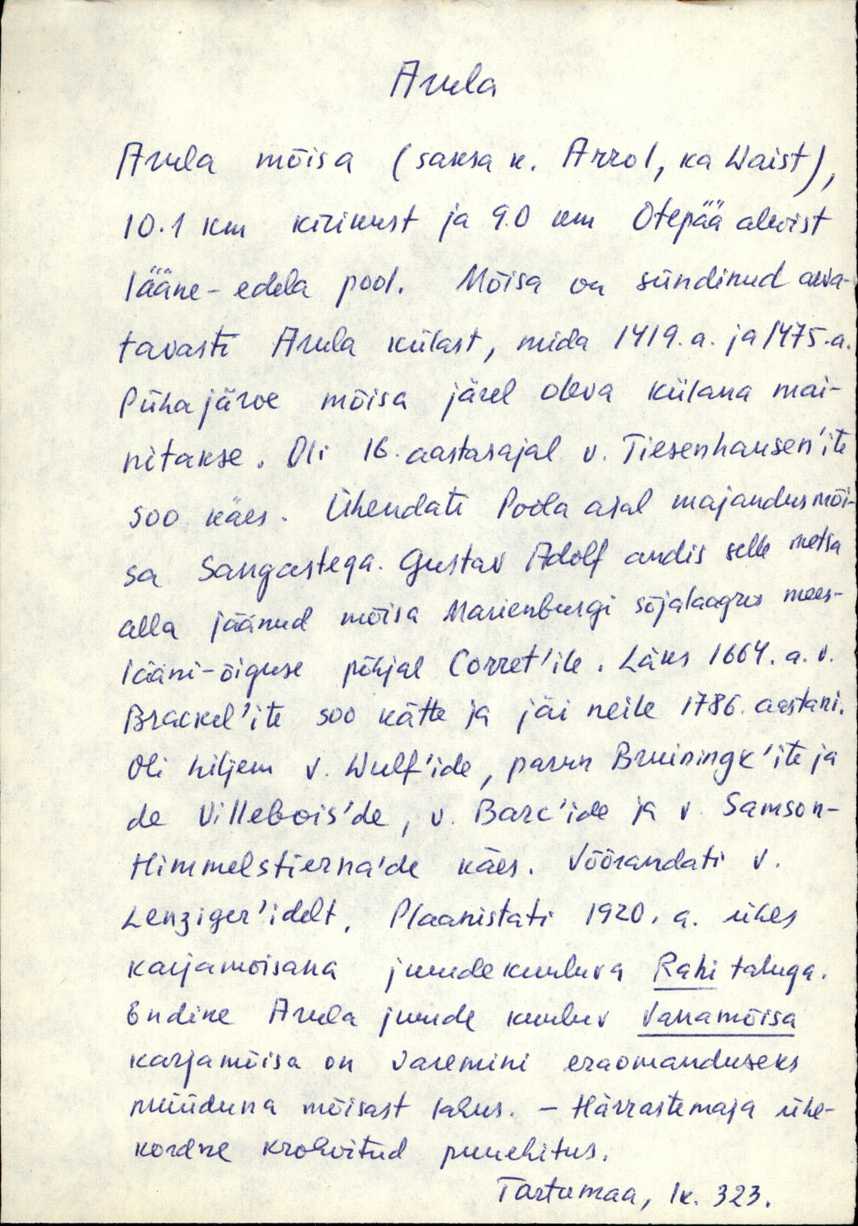 Arula
Arula mõisa (saksa k. Arrol, ka Waist),
10.1 km kirikust ja 9.0 km Otepää alevist
lääne-edela pool. Mõisa on sündinud arva-
tavasti Arula külast, mida 1419.a. ja 1475.a.
Pühajärve mõisa järel oleva külana mai-
nitakse. Oli 16. aastasajal v. Tiesenhausen'ite
soo käes. Ühendati Poola ajal majandusmõi-
sa Sangastega. Gustav Adolf andis selle metsa
alla jäänud mõisa Marienburgi sõjalaagris mees-
lääni-õiguse põhjal Corret'ile. Läks 1664.a. v.
Brackel'ite soo kätte ja jäi neile 1786. aastani.
Oli hiljem v. Wulf'ide, parun Bruiningk'ite ja
de Villebois'de, v. Barc'ide ja v. Samson-
Himmelstierna'de käes. Võõrandati v.
Lenziger'idelt. Plaanistati 1920. a. ühes
karjamõisana juurdekuuluva Rahi taluga.
Endine Arula juurde kuuluv Vanamõisa
karjamõisa on varemini eraomanduseks
müüduna mõisast lahus. - Härrastemaja ühe-
kordne krohvitud puuehitus.
Tartumaa, lk. 323.